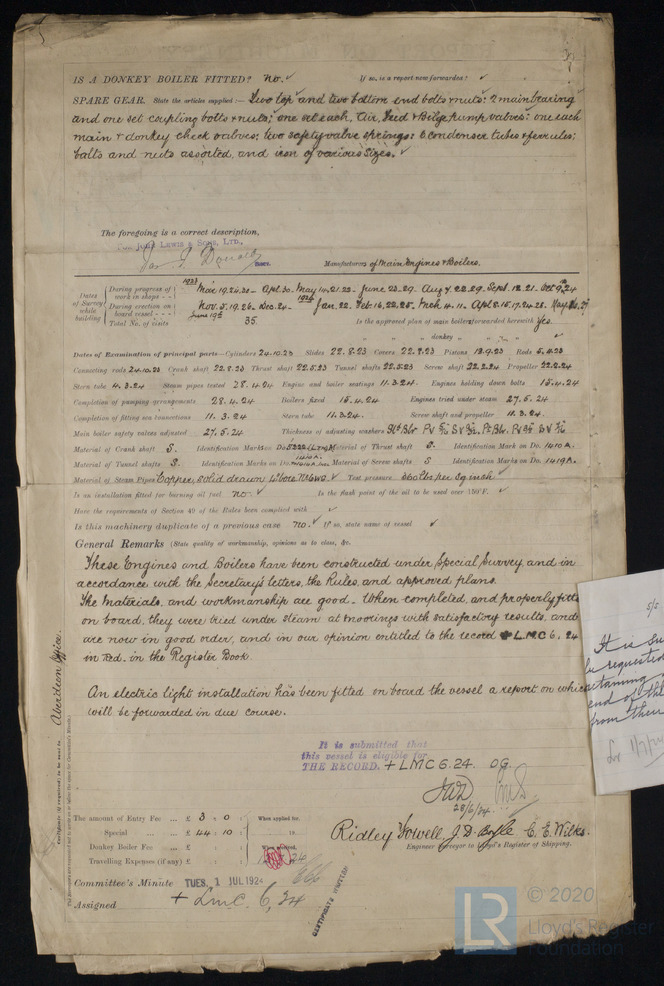 IS A DONKEY BOILER FITTED? No. ✓ If so, is a report now forwarded? ✓
SPARE GEAR. State the articles supplied:— Two top and two bottom end bolts & nuts: 2 main bearing
and one set coupling bolts & nuts; one set each, Air, Feed & Bilge pump valves: one each
main & donkey check valves; two safety valve springs: 6 condenser tubes & ferrules;
bolts and nuts assorted, and iron of various sizes. ✓
The foregoing is a correct description,
John Lewis & Sons, Ltd.,
Manufacturers of Main Engines & Boilers.
Dates of Survey while building
During progress of work in shops -- 1923 Mar. 19. 26. 30 - Apl. 30. May 14. 21. 22 - June 23. 29. Aug 7. 22. 29. Sept. 12. 21. Oct. 9. 24
During erection on board vessel --- Nov. 5. 19. 26. Dec. 24 - 1924 Jan. 22. Feb. 16. 22. 25. Mch. 4. 11. Apl. 8. 15. 17. 24. 28.
Total No. of visits June 19th 35. Is the approved plan of main boiler forwarded herewith Yes
" " " donkey " " "
Dates of Examination of principal parts—Cylinders 24.10.23 Slides 22.8.23 Covers 22.8.23 Pistons 12.9.23 Rods 5.11.23
Connecting rods 24.10.23 Crank shaft 22.8.23 Thrust shaft 22.5.23 Tunnel shafts 22.5.23 Screw shaft 22.2.24 Propeller 22.2.24
Stern tube 4.3.24 Steam pipes tested 28.4.24 Engine and boiler seatings 11.3.24. Engines holding down bolts 15.4.24
Completion of pumping arrangements 28.4.24 Boilers fixed 15.4.24 Engines tried under steam 27.5.24
Completion of fitting sea connections 11.3.24 Stern tube 11.3.24. Screw shaft and propeller 11.3.24.
Main boiler safety valves adjusted 27.5.24 Thickness of adjusting washers
Material of Crank shaft S. Identification Mark on Do. Material of Thrust shaft S. Identification Mark on Do. 1410A.
Material of Tunnel shafts S. Identification Marks on Do. Material of Screw shafts S Identification Marks on Do. 1419A.
Material of Steam Pipes Copper, solid drawn Test pressure 360 lbs per sq inch ✓
Is an installation fitted for burning oil fuel no. ✓ Is the flash point of the oil to be used over 150°F. ✓
Have the requirements of Section 49 of the Rules been complied with ✓
Is this machinery duplicate of a previous case no. ✓ If so, state name of vessel ✓
General Remarks (State quality of workmanship, opinions as to class, &c.
These Engines and Boilers have been constructed under Special Survey, and in
accordance with the Secretary's letters, the Rules, and approved plans.
The Materials, and workmanship are good. When completed, and properly fitted
on board, they were tried under steam at moorings with satisfactory results, and
are now in good order, and in our opinion entitled to the record + LMC 6, 24
in Red, in the Register Book.
An electric light installation has been fitted on board the vessel a report on which
will be forwarded in due course.
It is submitted that
this vessel is eligible for
THE RECORD. + LMC 6.24. OG.
28/6/24
Aberdeen Office.
Certificate (if required) to be sent to
The amount of Entry Fee ... £ 3 : 0 : When applied for,
Special ... £ 44 : 10 : 19
Donkey Boiler Fee ... £ : :
Travelling Expenses (if any) £ : : 24
Ridley Howell, J. D. Boyle C. E. Wilks.
Engineer Surveyor to Lloyd's Register of Shipping.
Committee's Minute TUES. 1 JUL 1924
Assigned + LMC 6, 24
CERTIFICATE WRITTEN
5/2
It is su
be requested
end of th
from them
© 2020
LR
Lloyd's Register
Foundation